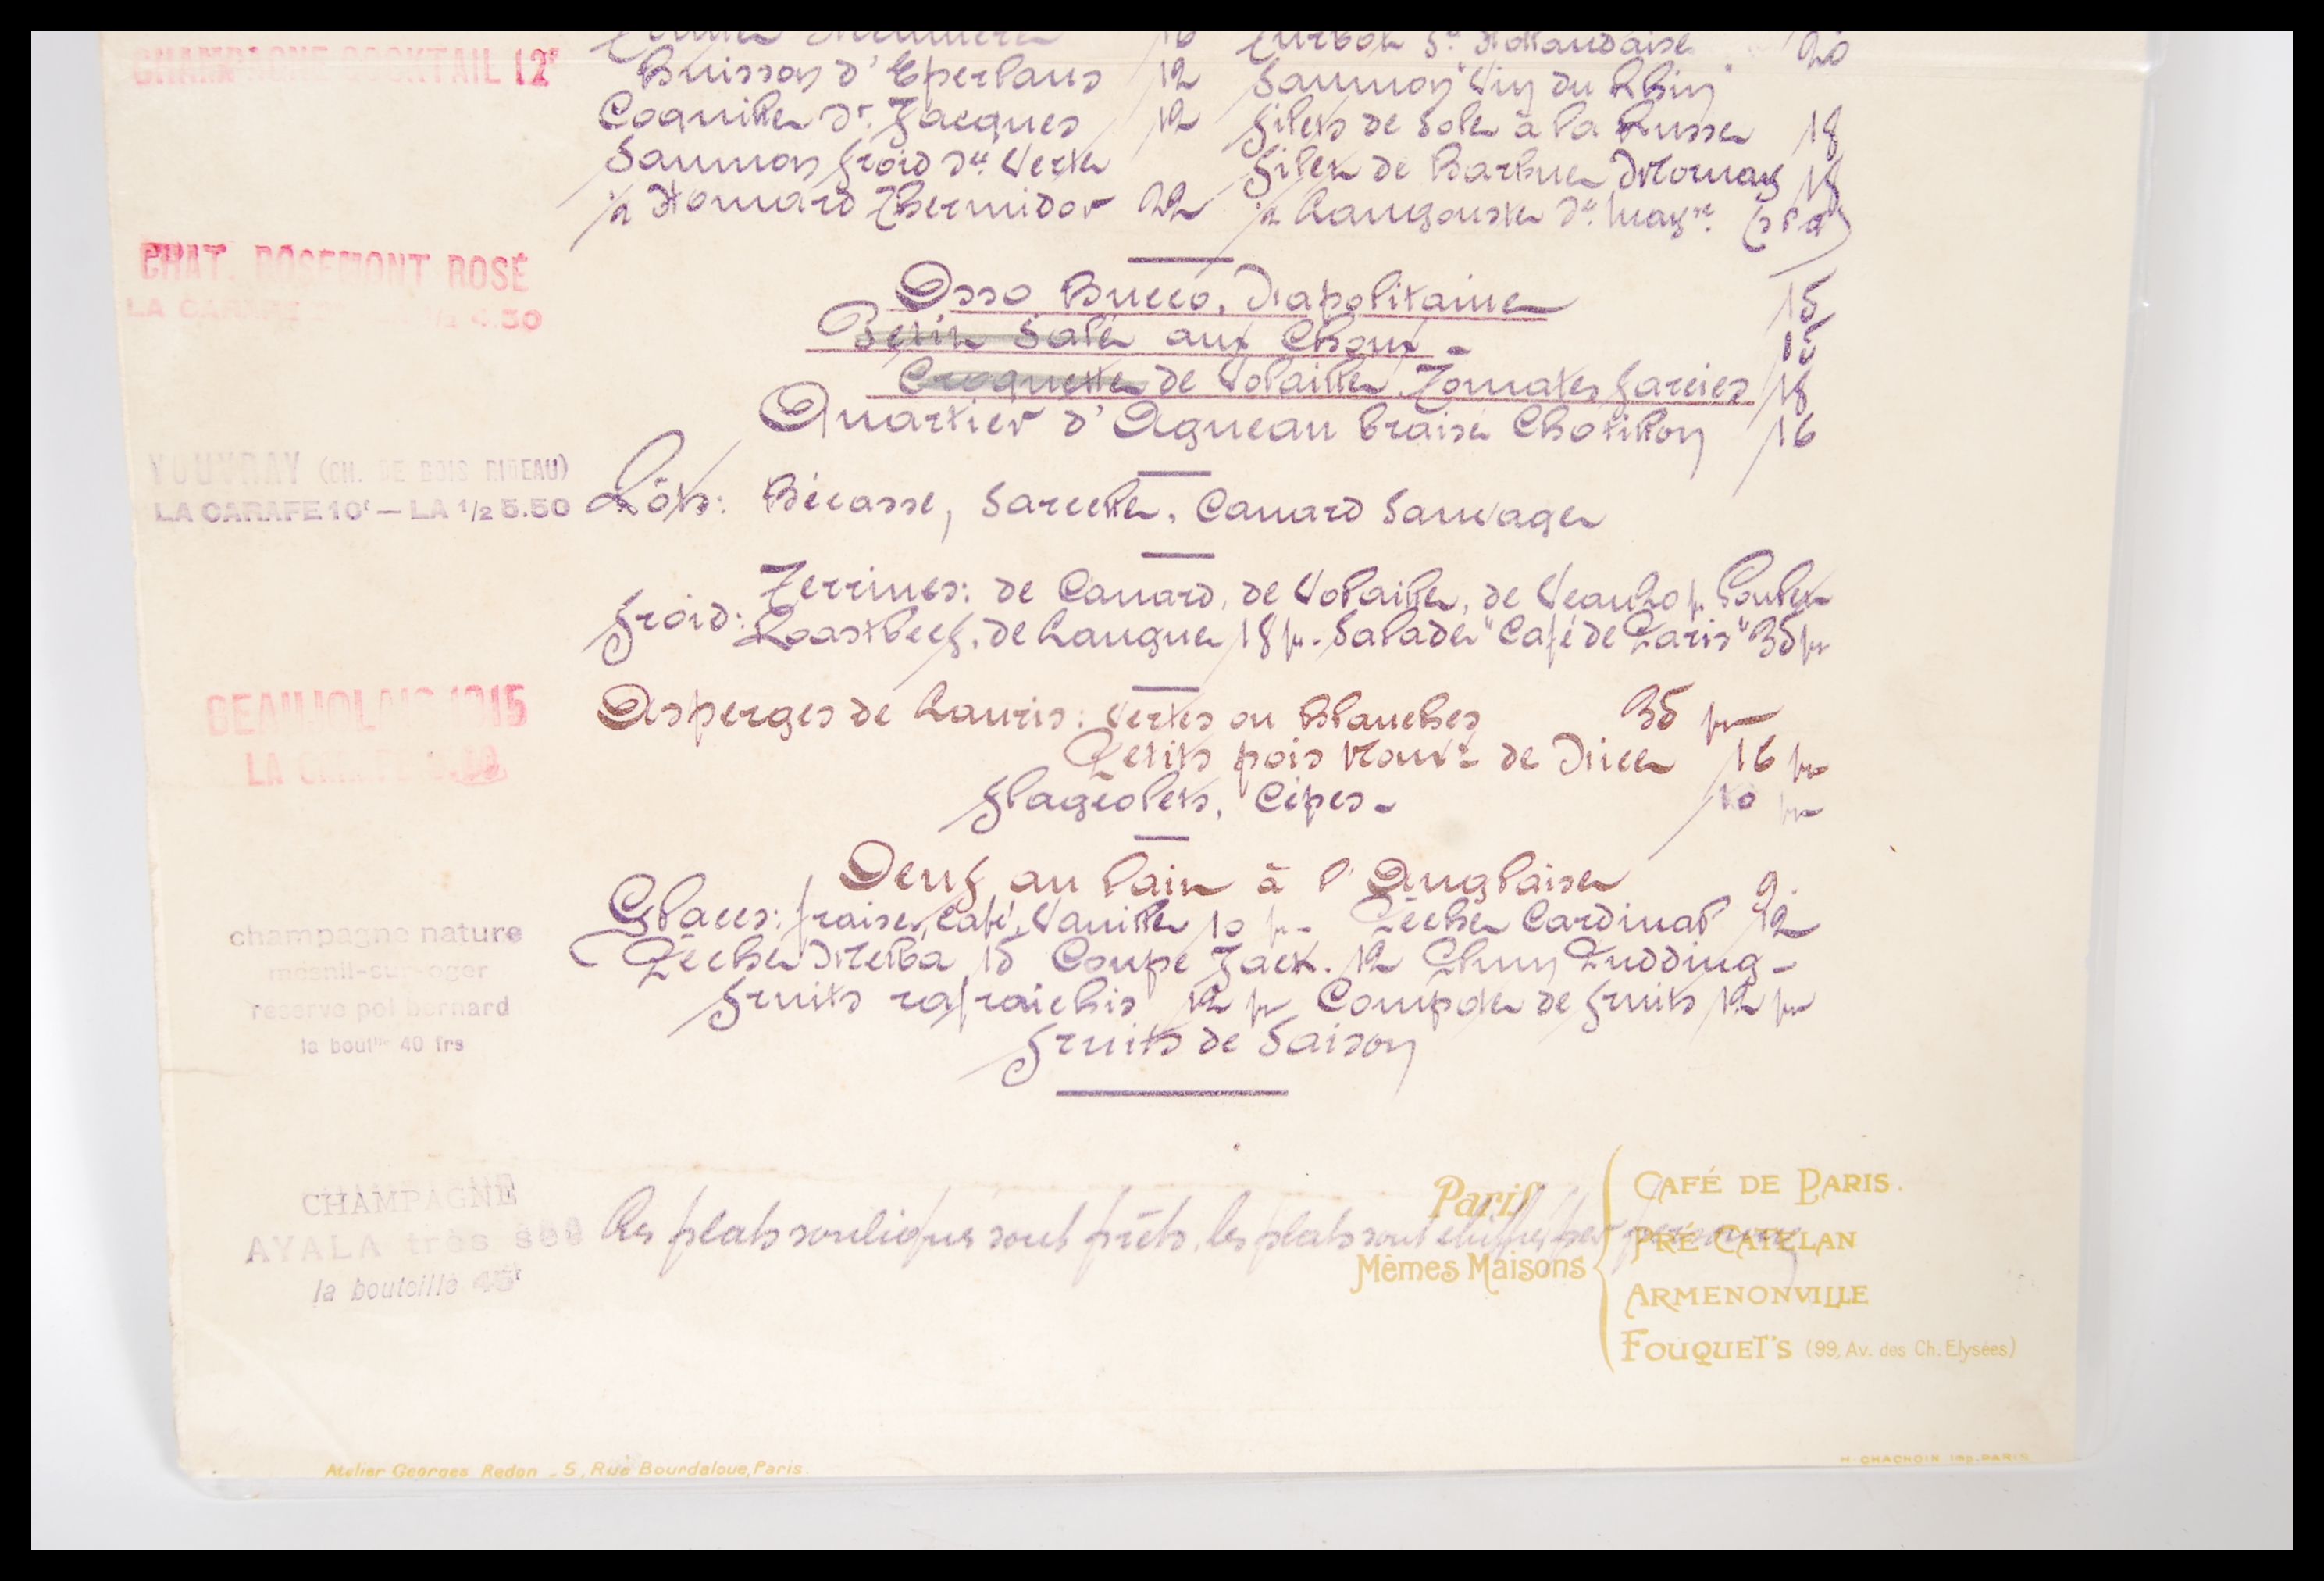 CHAMPAGNE COCKTAIL 12f
16 Turbot Sce Hollandaise 20
Buisson d'Eperlans 12 Saumon "Vin du Rhin"
Coquille St Jacques 12 Filets de Sole à la Russe 18
Saumon froid Sce Verte Filet de Barbue Mornay 18
½ Homard Thermidor 22 ½ Langouste Sce Mayse (s.g.)
CHAT. ROSEMONT ROSÉ
LA CARAFE ½ 4.50
Osso Bucco, Napolitaine 15
Petit Salé aux Choux - 15
Croquette de Volaille, Tomates farcies 18
Quartier d'Agneau braisé Chatillon 16
VOUVRAY (CH. DE BOIS RIDEAU)
LA CARAFE 10f — LA 1/2 5.50
Rôts: Bécasse, Sarcelle, Canard Sauvage
Terrines: de Canard, de Volaille, de Veau 20 fr. Poulet
Froid: Roastbeef, de Langue 18 fr. Salade "Café de Paris" 35 fr
BEAUJOLAIS 1915
LA CARAFE
Asperges de Lauris: Vertes ou Blanches 35 fr
Petits pois Nouvx de Nice 16 fr
Flageolets, Cèpes - 10 fr
Oeuf au lait à l'Anglaise 9.
Glaces: fraise, Café, Vanille 10 fr - Pêche Cardinal 12
Pêche Melba 15 Coupe Jack. 12 Plum Pudding -
Fruits rafraichis 12 fr Compote de fruits 12 fr
Fruits de Saison
champagne nature
mesnil-sur-oger
reserve pol bernard
la boutlle 40 frs
CHAMPAGNE
AYALA très sec
la bouteille 45f
Les plats soulignés sont prêts, les plats sont chiffrés par personne
Paris
Mêmes Maisons
CAFÉ DE PARIS.
PRÉ CATELAN
ARMENONVILLE
FOUQUET'S (99, Av. des Ch. Elysées)
Atelier Georges Redon - 5, Rue Bourdaloue, Paris.
H. CHACHOIN Imp. PARIS